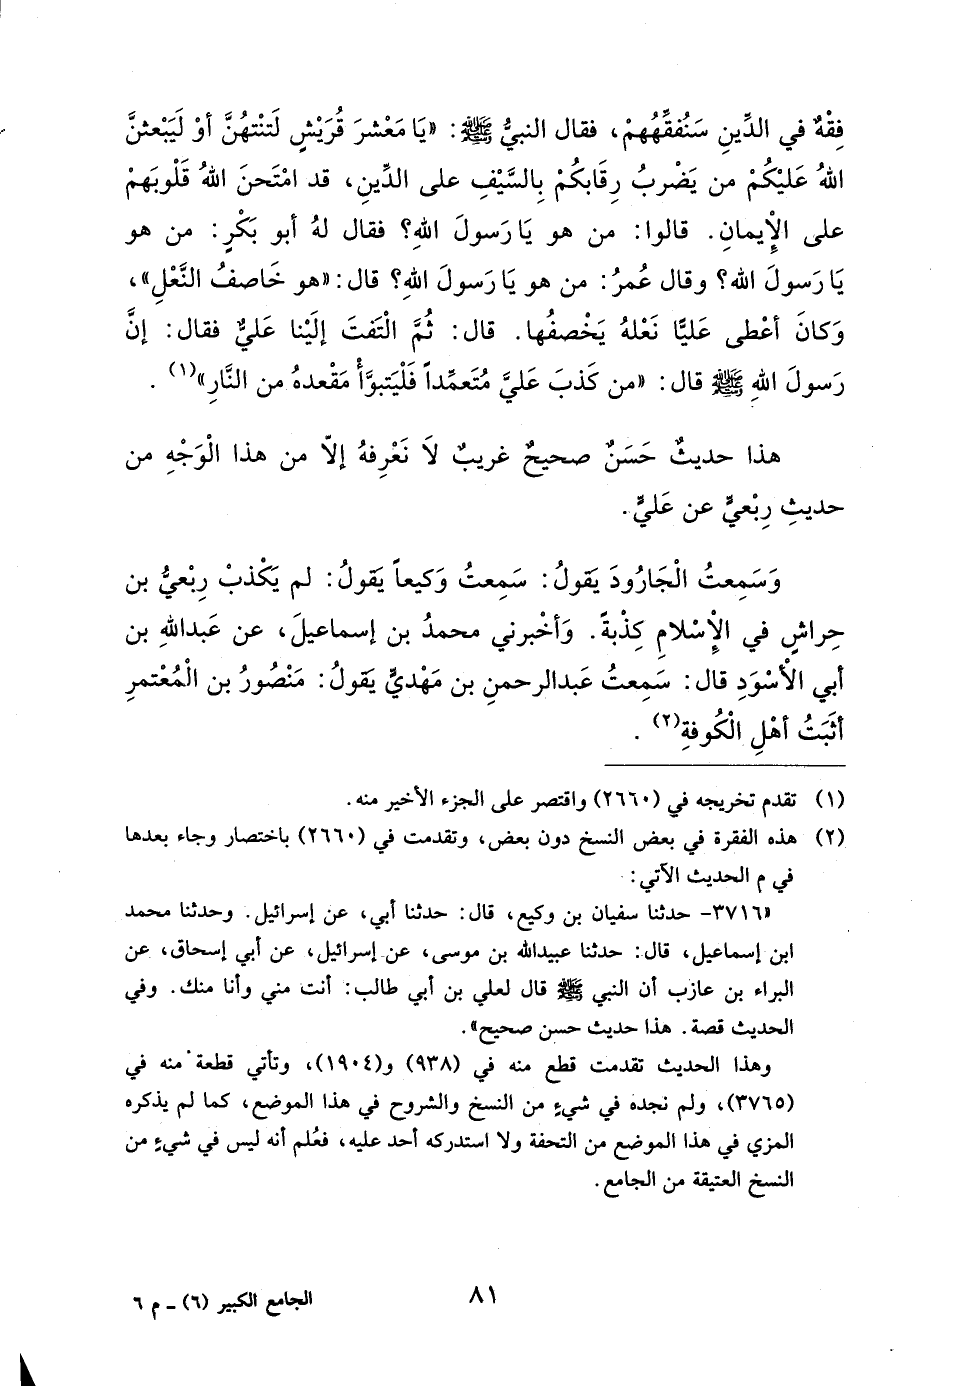 فِقْهٌ في الدِّينِ سَنُفقِّهُهُمْ، فقال النبيُّ ﷺ: «يَا مَعْشرَ قُرَيْشٍ لَتنْتهُنَّ أوْ لَيَبْعثنَّ
اللهُ عَليْكُمْ من يَضْربُ رِقابكُمْ بِالسَّيْفِ على الدِّينِ، قد امْتَحنَ اللهُ قَلْوبَهمْ
على الإِيمانِ. قالوا: من هو يَا رَسولَ اللهِ؟ فقال لهُ أبو بَكْرٍ: من هو
يَا رَسولَ الله؟ وقال عُمرُ: من هو يَا رَسولَ اللهِ؟ قال: «هو خَاصفُ النَّعْلِ»،
وَكانَ أعْطى عَليًّا نَعْلهُ يَخْصفُها. قال: ثُمَّ الْتَفتَ إلَيْنا عَليٌّ فقال: إنَّ
رَسولَ اللهِ ﷺ قال: «من كَذبَ عَليَّ مُتَعمِّداً فَلْيَتبوَّأْ مَقْعدهُ من النَّارِ»(١) .
هذا حديثٌ حَسَنٌ صحيحٌ غريبٌ لاَ نَعْرِفهُ إلاّ من هذا الْوَجْهِ من
حديثِ رِبْعيٍّ عن عَليٍّ.
وَسَمِعتُ الْجَارُودَ يَقولُ: سَمِعتُ وَكيعاً يَقولُ: لم يَكْذبْ رِبْعيُّ بن
حِراشٍ في الإِسْلامِ كِذْبةً. وَأخْبرني محمدُ بن إسماعيلَ، عن عَبدالله بن
أبي الأسْوَدِ قال: سَمِعتُ عَبدالرحمنِ بن مَهْديٍّ يَقولُ: مَنْصُورُ بن الْمُعْتمرِ
أثَبَتُ أهْلِ الْكُوفةِ(٢) .
(١) تقدم تخريجه في (٢٦٦٠) واقتصر على الجزء الأخير منه.
(٢) هذه الفقرة في بعض النسخ دون بعض، وتقدمت في (٢٦٦٠) باختصار وجاء بعدها
في م الحديث الآتي:
«٣٧١٦- حدثنا سفيان بن وكيع، قال: حدثنا أبي، عن إسرائيل. وحدثنا محمد
ابن إسماعيل، قال: حدثنا عبيدالله بن موسى، عن إسرائيل، عن أبي إسحاق، عن
البراء بن عازب أن النبي ﷺ قال لعلي بن أبي طالب: أنت مني وأنا منك. وفي
الحديث قصة. هذا حديث حسن صحيح».
وهذا الحديث تقدمت قطع منه في (٩٣٨) و(١٩٠٤)، وتأتي قطعة منه في
(٣٧٦٥)، ولم نجده في شيءٍ من النسخ والشروح في هذا الموضع، كما لم يذكره
المزي في هذا الموضع من التحفة ولا استدركه أحد عليه، فعُلم أنه ليس في شيءٍ من
النسخ العتيقة من الجامع.
٨١
الجامع الكبير (٦) - م ٦